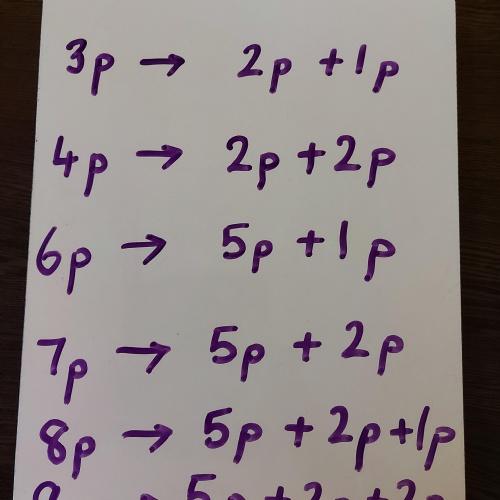 3p → 2p + 1p
4p → 2p + 2p
6p → 5p + 1p
7p → 5p + 2p
8p → 5p + 2p + 1p